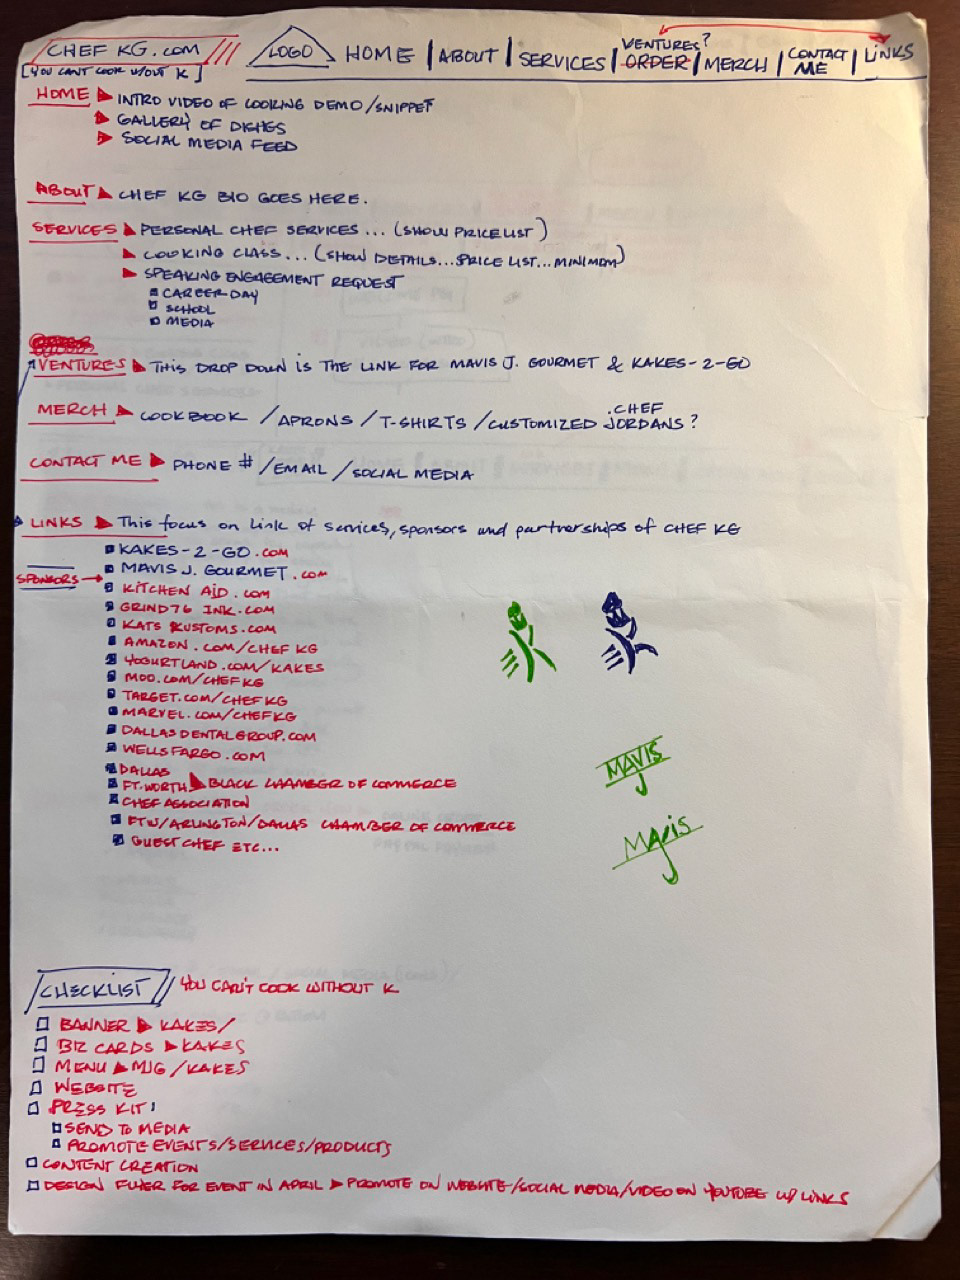 CHEF KG.COM
[YOU CAN'T COOK W/OUT K]
LOGO HOME | ABOUT | SERVICES | VENTURES? ORDER | MERCH | CONTACT ME | LINKS
HOME ▶ INTRO VIDEO OF COOKING DEMO/SNIPPET
▶ GALLERY OF DISHES
▶ SOCIAL MEDIA FEED
ABOUT ▶ CHEF KG BIO GOES HERE.
SERVICES ▶ PERSONAL CHEF SERVICES... (SHOW PRICE LIST)
▶ COOKING CLASS... (SHOW DETAILS...PRICE LIST...MINIMUM)
▶ SPEAKING ENGAGEMENT REQUEST
CAREER DAY
SCHOOL
MEDIA
VENTURES ▶ THIS DROP DOWN IS THE LINK FOR MAVIS J. GOURMET & KAKES-2-GO
MERCH ▶ COOKBOOK / APRONS / T-SHIRTS / CUSTOMIZED CHEF JORDANS?
CONTACT ME ▶ PHONE # / EMAIL / SOCIAL MEDIA
LINKS ▶ This focus on link of services, sponsors and partnerships of CHEF KG
KAKES-2-GO.COM
MAVIS J. GOURMET.COM
SPONSORS →
KITCHEN AID.COM
GRIND76 INK.COM
KATS KUSTOMS.COM
AMAZON.COM/CHEF KG
YOGURTLAND.COM/KAKES
MOO.COM/CHEFKG
TARGET.COM/CHEFKG
MARVEL.COM/CHEFKG
DALLASDENTALGROUP.COM
WELLSFARGO.COM
DALLAS
FT.WORTH ▶ BLACK CHAMBER OF COMMERCE
CHEF ASSOCIATION
FTW/ARLINGTON/DALLAS CHAMBER OF COMMERCE
GUEST CHEF ETC...
MAVIS
MAVIS
CHECKLIST // YOU CAN'T COOK WITHOUT K
BANNER ▶ KAKES/
BIZ CARDS ▶ KAKES
MENU ▶ MJG/KAKES
WEBSITE
PRESS KIT:
SEND TO MEDIA
PROMOTE EVENTS/SERVICES/PRODUCTS
CONTENT CREATION
DESIGN FLYER FOR EVENT IN APRIL ▶ PROMOTE ON WEBSITE/SOCIAL MEDIA/VIDEO ON YOUTUBE W/ LINKS